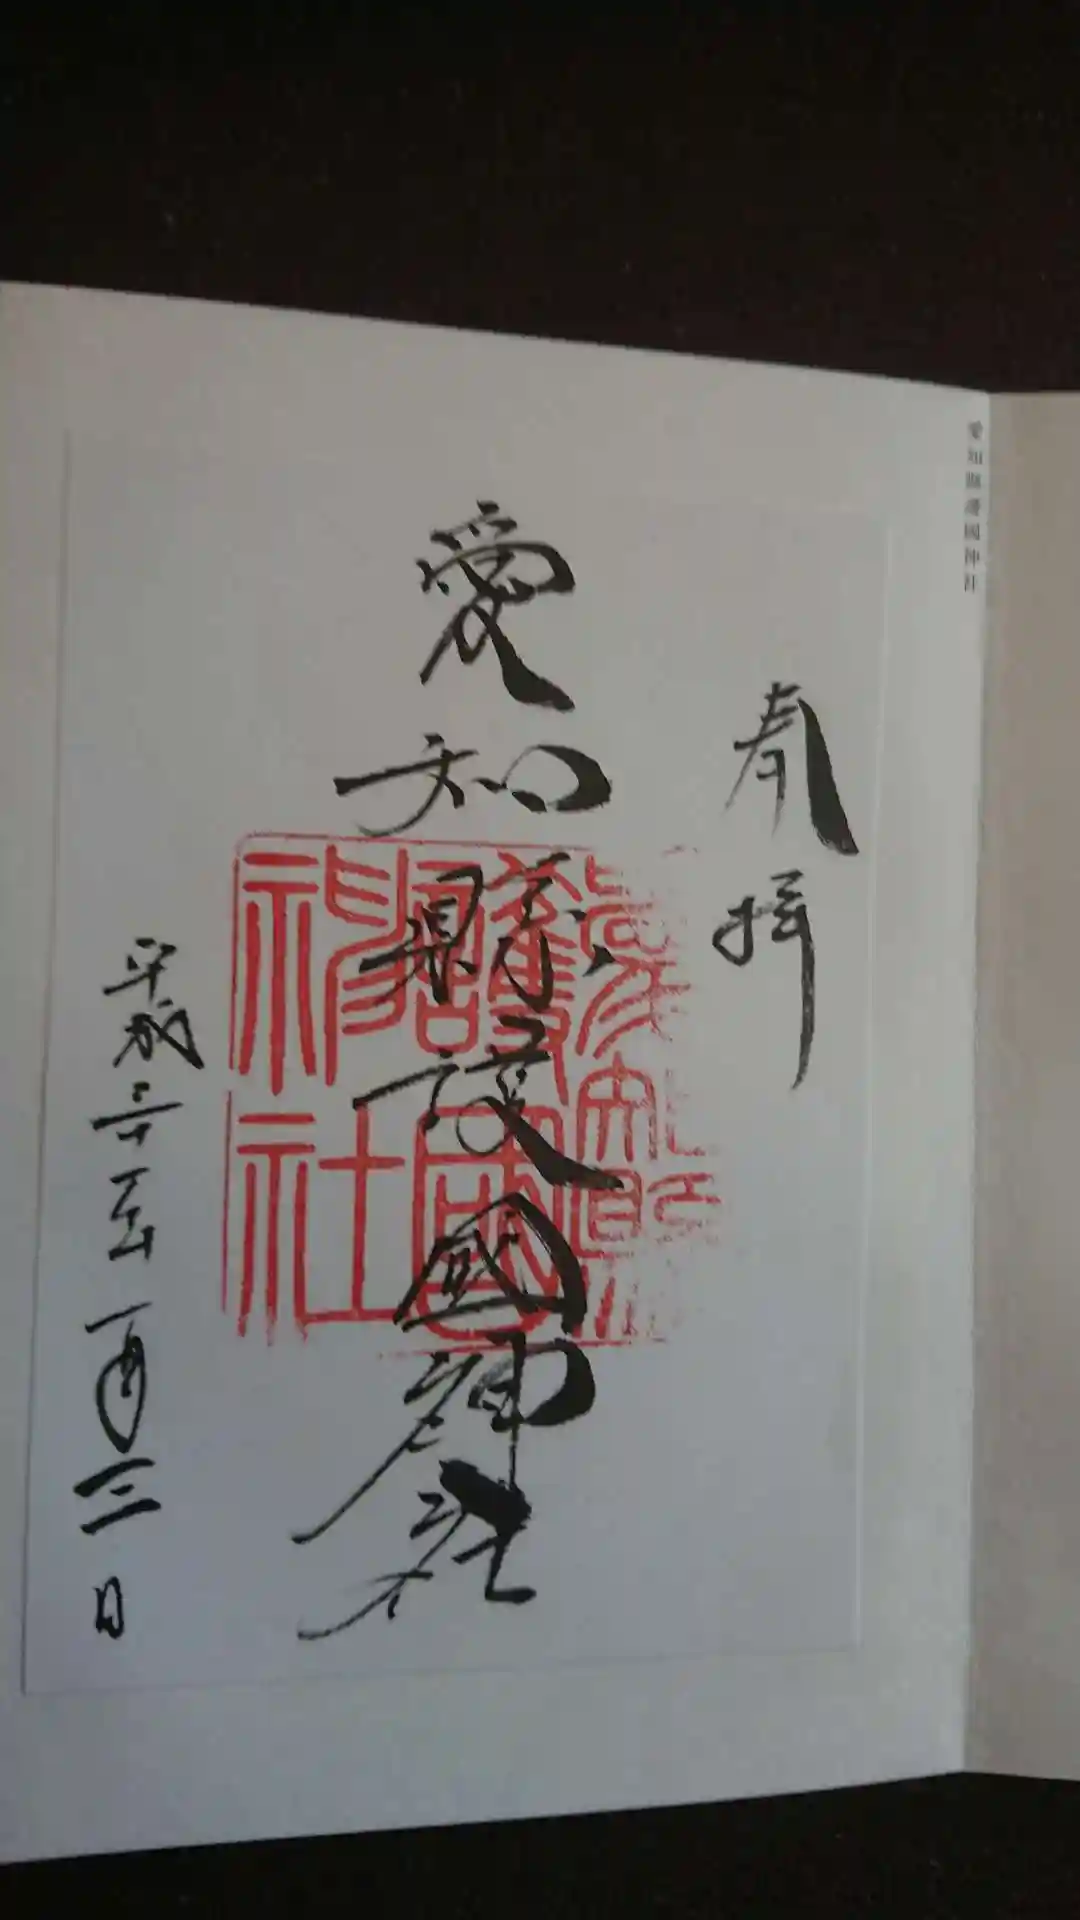 愛知縣護國神社
奉拝
愛知縣護國神社
愛知縣護國神社
平成二六年一月三日